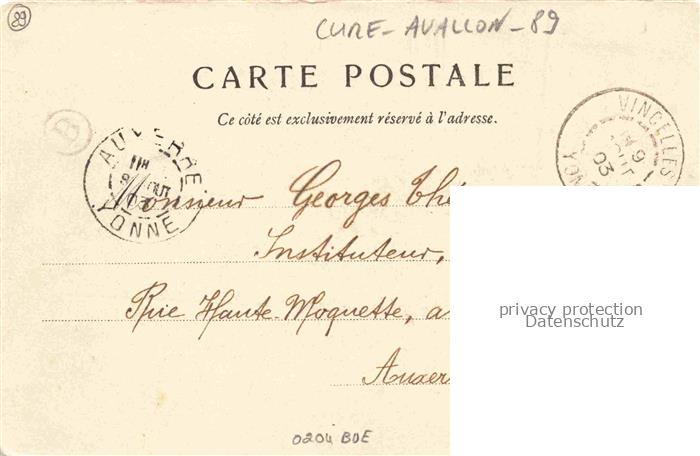 89
CURE - AVALLON - 89
CARTE POSTALE
Ce côté est exclusivement réservé à l'adresse.
B
AUXERRE
YONNE
VINCELLES
9
03
Monsieur Georges Thé
Instituteur,
Rue Haute-Moquette, a
privacy protection
Datenschutz
Auxer
0204 BDE